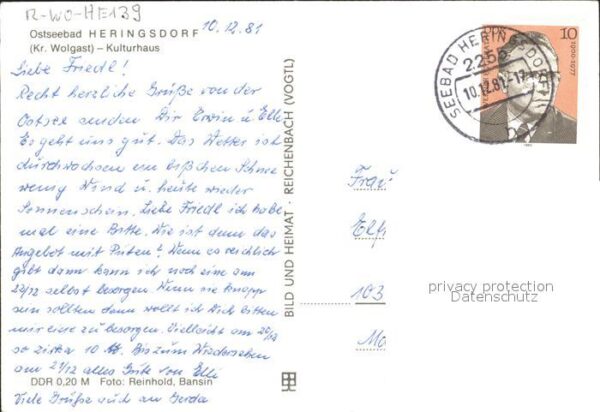 R-WO-HE139
10.12.81
Ostseebad HERINGSDORF
(Kr. Wolgast) – Kulturhaus
Liebe Friedl!
Recht herzliche Grüße von der
Ostsee senden Dir Erwin u. Elli
Es geht uns gut. Das Wetter ist
durchwachsen ein bißchen Schnee
wenig Wind u. heute wieder
Sonnenschein. Liebe Friedl ich habe
mal eine Bitte. Wie ist denn das
Angebot mit Puten? Wenn es reichlich
gibt dann kann ich noch eine am
22/12 selbst besorgen Wenn sie knapp
sein sollten dann wollt ich Dich bitten
mir eine zu besorgen. Vielleicht am
so zirka 10 Bis zum Wiedersehen
am 21/12 alles Gute von Elli
DDR 0,20 M Foto: Reinhold, Bansin
Viele Grüße auch an Gerda
BILD UND HEIMAT · REICHENBACH (VOGTL)
SEEBAD HERINGSDORF
2255
10.12.81-17
10
1900-1977
Frau
103
privacy protection
Datenschutz